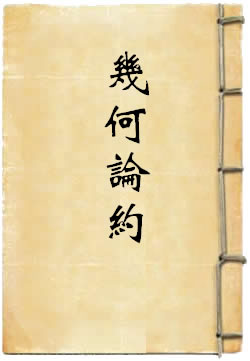 幾何論約